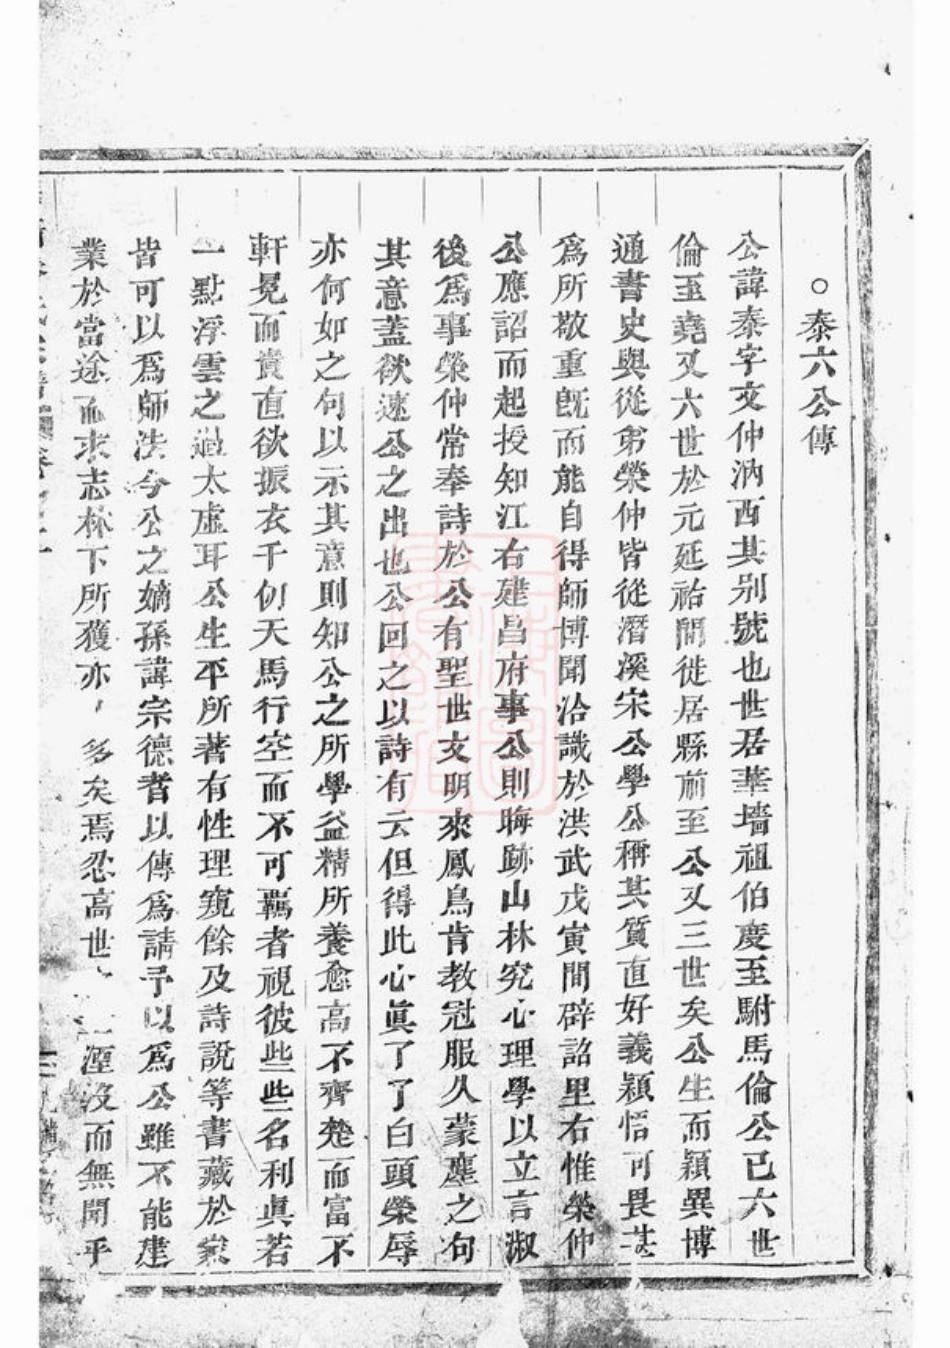 ○泰六公傳
公諱泰字文仲汭西其别號也世居華墻祖伯慶至駙馬倫公已六世
倫至堯又六世於元延祐間徙居縣前至公又三世矣公生而穎異博
通書史與從弟榮仲皆從潛溪宋公學公稱其質直好義穎悟可畏甚
爲所敬重既而能自得師博聞洽識於洪武戊寅間辟詔里右惟榮仲
公應詔而起授知江右建昌府事公則晦跡山林究心理學以立言淑
後爲事榮仲常奉詩於公有聖世文明來鳳鳥肯教冠服久蒙塵之句
其意蓋欲速公之出也公回之以詩有云但得此心眞了了白頭榮辱
亦何如之句以示其意則知公之所學益精所養愈高不齊楚而富不
軒冕而貴直欲振衣千仞天馬行空而不可羈者視彼些些名利眞若
一點浮雲之過太虛耳公生平所著有性理窺餘及詩說等書藏於家
皆可以爲師法今公之嫡孫諱宗德者以傳爲請予以爲公雖不能建
業於當途而求志林下所獲亦 多矣焉忍高世 湮没而無聞乎